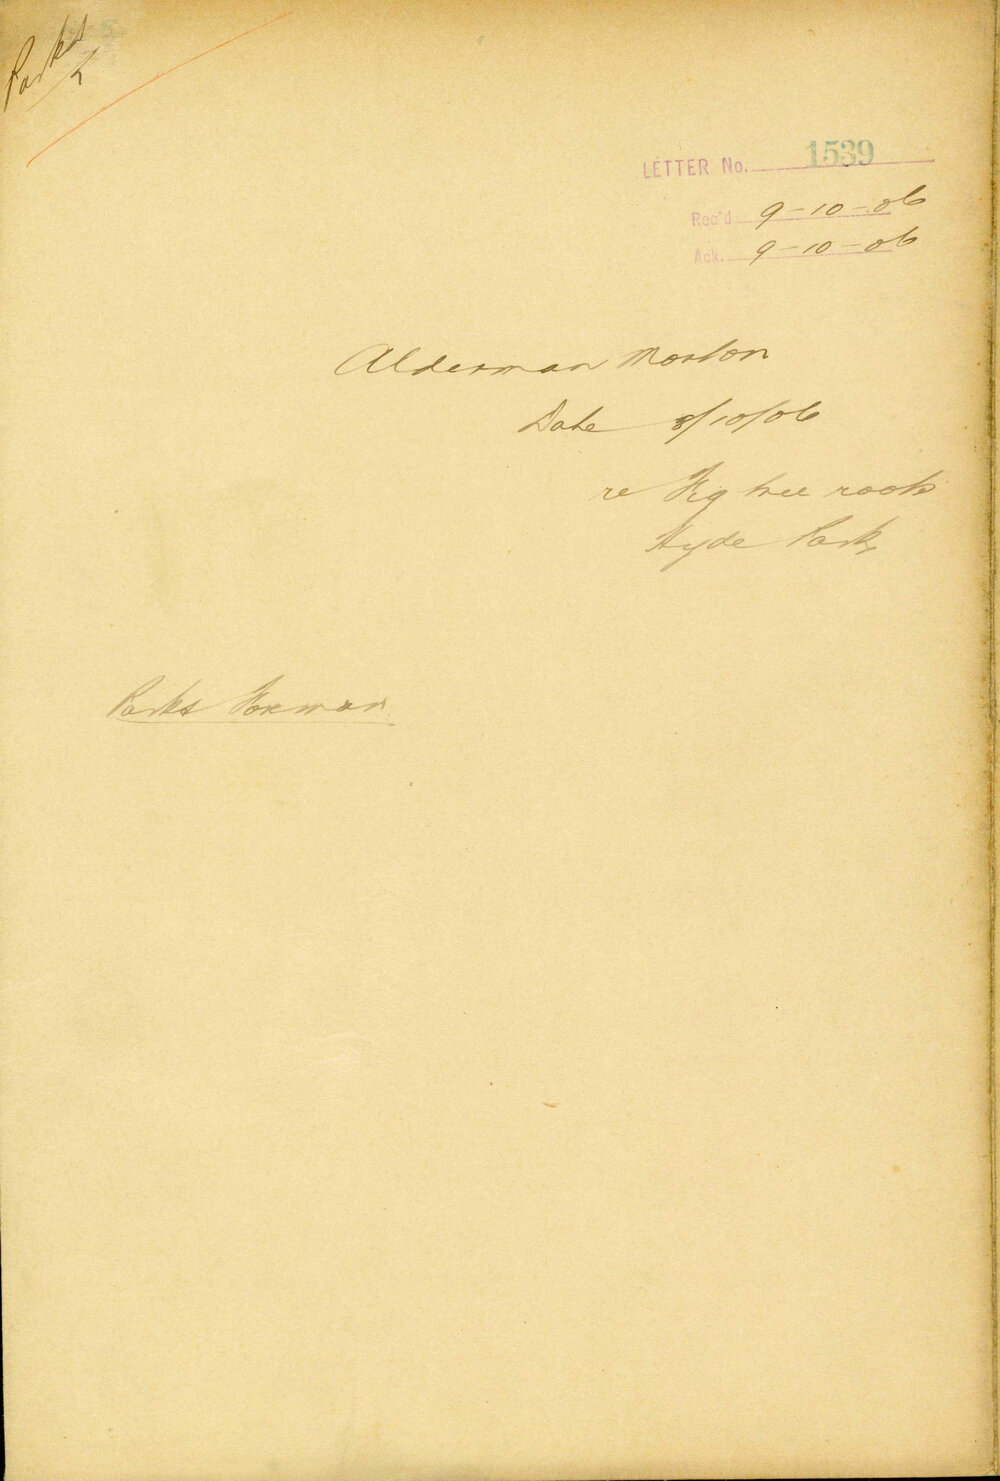 Parks
LETTER No. 1539
Rec'd 9-10-06
Ack. 9-10-06
Alderman Morton
Date 8/10/06
re Fig tree roots
Hyde Park
Parks Foreman